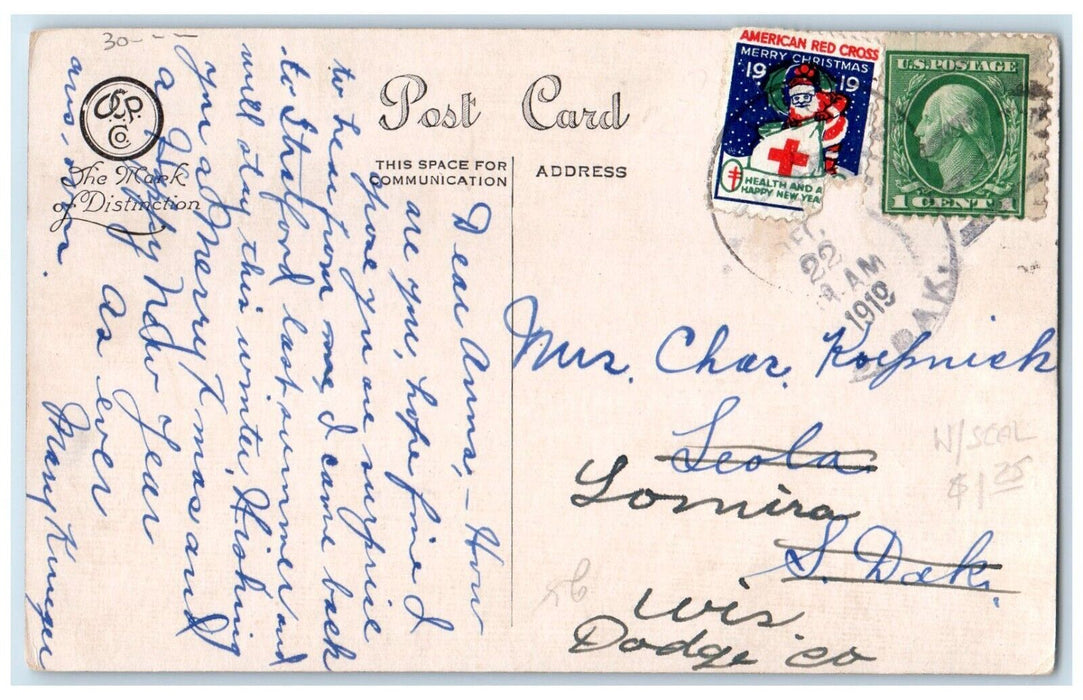 30---
O.S.P. Co.
The Mark
of Distinction
Post Card
THIS SPACE FOR
COMMUNICATION
ADDRESS
AMERICAN RED CROSS
MERRY CHRISTMAS
19 19
HEALTH AND A
HAPPY NEW YEA
U.S. POSTAGE
1 CENT 1
22
AM
1919
DAK.
Dear Anna; – How
are you, hope fine I
spose you are surprise
to hear from me, I came back
to Stratford last summer and
will stay this winter, Wishing
you a Merry X mas and
a Happy New Year
As ever
Mary Kinger
ans. soon.
Mrs. Chas. Koepnick
Leola
Lomira
S. Dak.
Wis.
Dodge Co
W/SEAL
$1.25